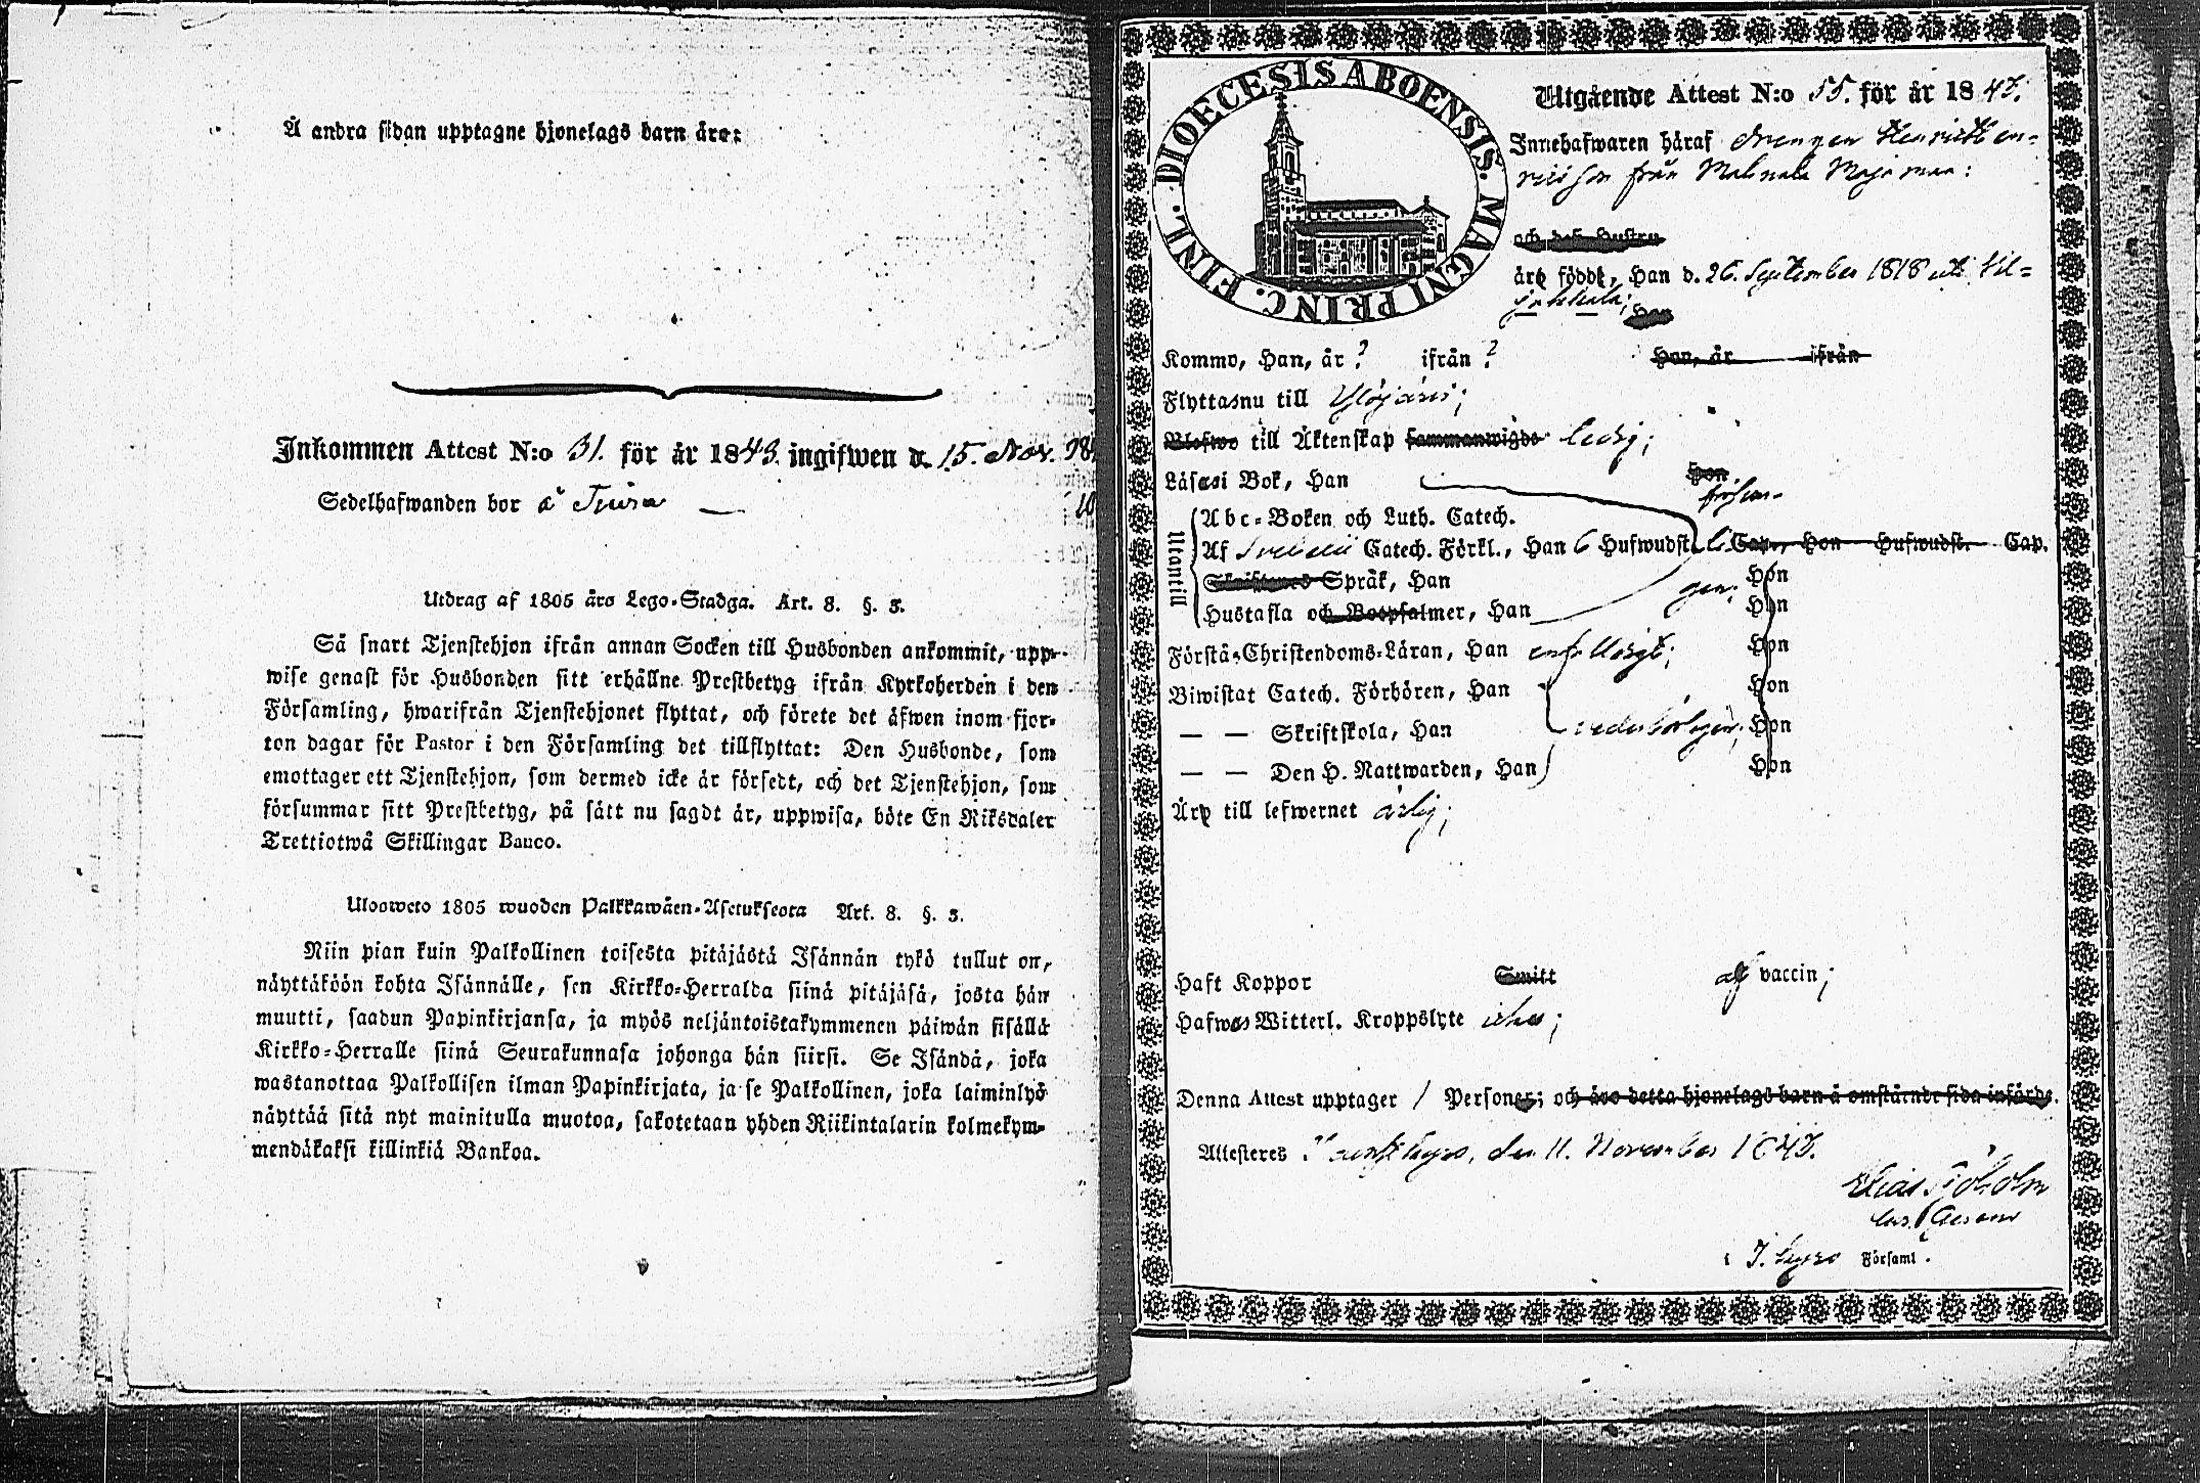 Å andra sidan upptagne hjonelags barn äro:
Inkommen Attest N:o 31. för år 1843. ingifwen d. 15. Nov.
Sedelhafwanden bor å
Utdrag af 1805 års Lego-Stadga. Art. 8. §. 3.
Så snart Tjenstehjon ifrån annan Socken till Husbonden ankommit, upp-
wise genast för Husbonden sitt erhållne Prestbetyg ifrån Kyrkoherden i den
Församling, hwarifrån Tjenstehjonet flyttat, och förete det äfwen inom fjor-
ton dagar för Pastor i den Församling det tillflyttat: Den Husbonde, som
emottager ett Tjenstehjon, som dermed icke är försedt, och det Tjenstehjon, som
försummar sitt Prestbetyg, på sätt nu sagdt är, uppwisa, böte En Riksdaler
Trettiotwå Skillingar Banco.
Ulosweto 1805 wuoden Palkkawäen-Asetuksesta Art. 8. §. 3.
Niin pian kuin Palkollinen toisesta pitäjästä Isännän tykö tullut on,
näyttäköön kohta Isännälle, sen Kirkko-Herralda siinä pitäjäsä, josta hän
muutti, saadun Papinkirjansa, ja myös neljäntoistakymmenen päiwän sisällä
Kirkko-Herralle siinä Seurakunnasa johonga hän siirsi. Se Isändä, joka
wastanottaa Palkollisen ilman Papinkirjata, ja se Palkollinen, joka laiminlyö
näyttää sitä nyt mainitulla muotoa, sakotetaan yhden Riikintalarin kolmekym-
mendäkaksi killinkiä Bankoa.
DIOECESIS ABOENSIS. MAGNI PRINC. FINL.
Utgående Attest N:o 55. för år 1843.
Innehafwaren häraf drengen Henrik Hen-
ricsson från
och deß Hustru
äro född, Han d. 26. September 1818 uti
Hon
Kommo, Han, år ? ifrån ? Hon, år ifrån
Flyttas nu till Ylöjärvi;
Blefwo till Äktenskap sammanwigde ledig;
Läsa i Bok, Han Hon
Utantill
Abc-Boken och Luth. Catech.
Af Svebelii Catech. Förkl., Han 6 Hufwudst. Cap., Hon Hufwudst. Cap.
Skriftenes Språk, Han Hon
Hustafla och Botpsalmer, Han Hon
Förstå Christendoms-Läran, Han enfalldigt; Hon
Biwistat Catech. Förhören, Han Hon
— — Skriftskola, Han vederbörligen; Hon
— — Den H. Nattwarden, Han Hon
Äro till lefwernet ärlig;
Haft Koppor Smitt af vaccin;
Hafwas Witterl. Kroppslyte icke;
Denna Attest upptager 1 Personer; och äro detta hjonelags barn å omstående sida införde.
Attesteres den 11. November 1843.
Elias
i Församl.